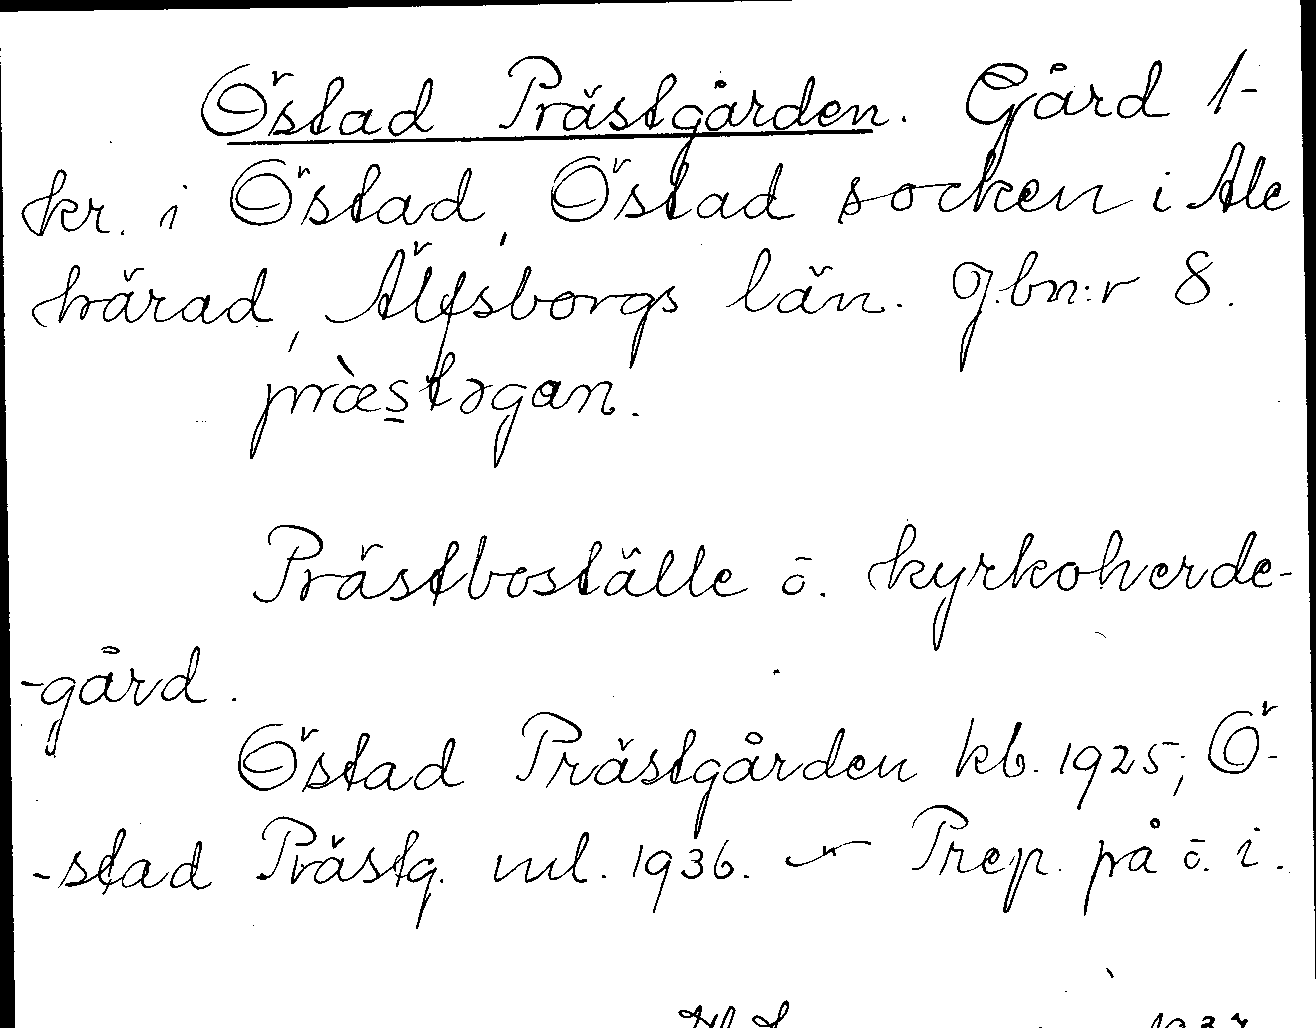 Östad Prästgården. Gård 1-
kr. i Östad, Östad socken i Ale
härad, Älfsborgs län. G.bn:r 8.
præ̀s̠təgan.
Prästboställe ō. kyrkoherde-
-gård.
Östad Prästgården kb. 1925; Ö-
-stad Prästg. ml. 1936. — Prep. på ō. i.